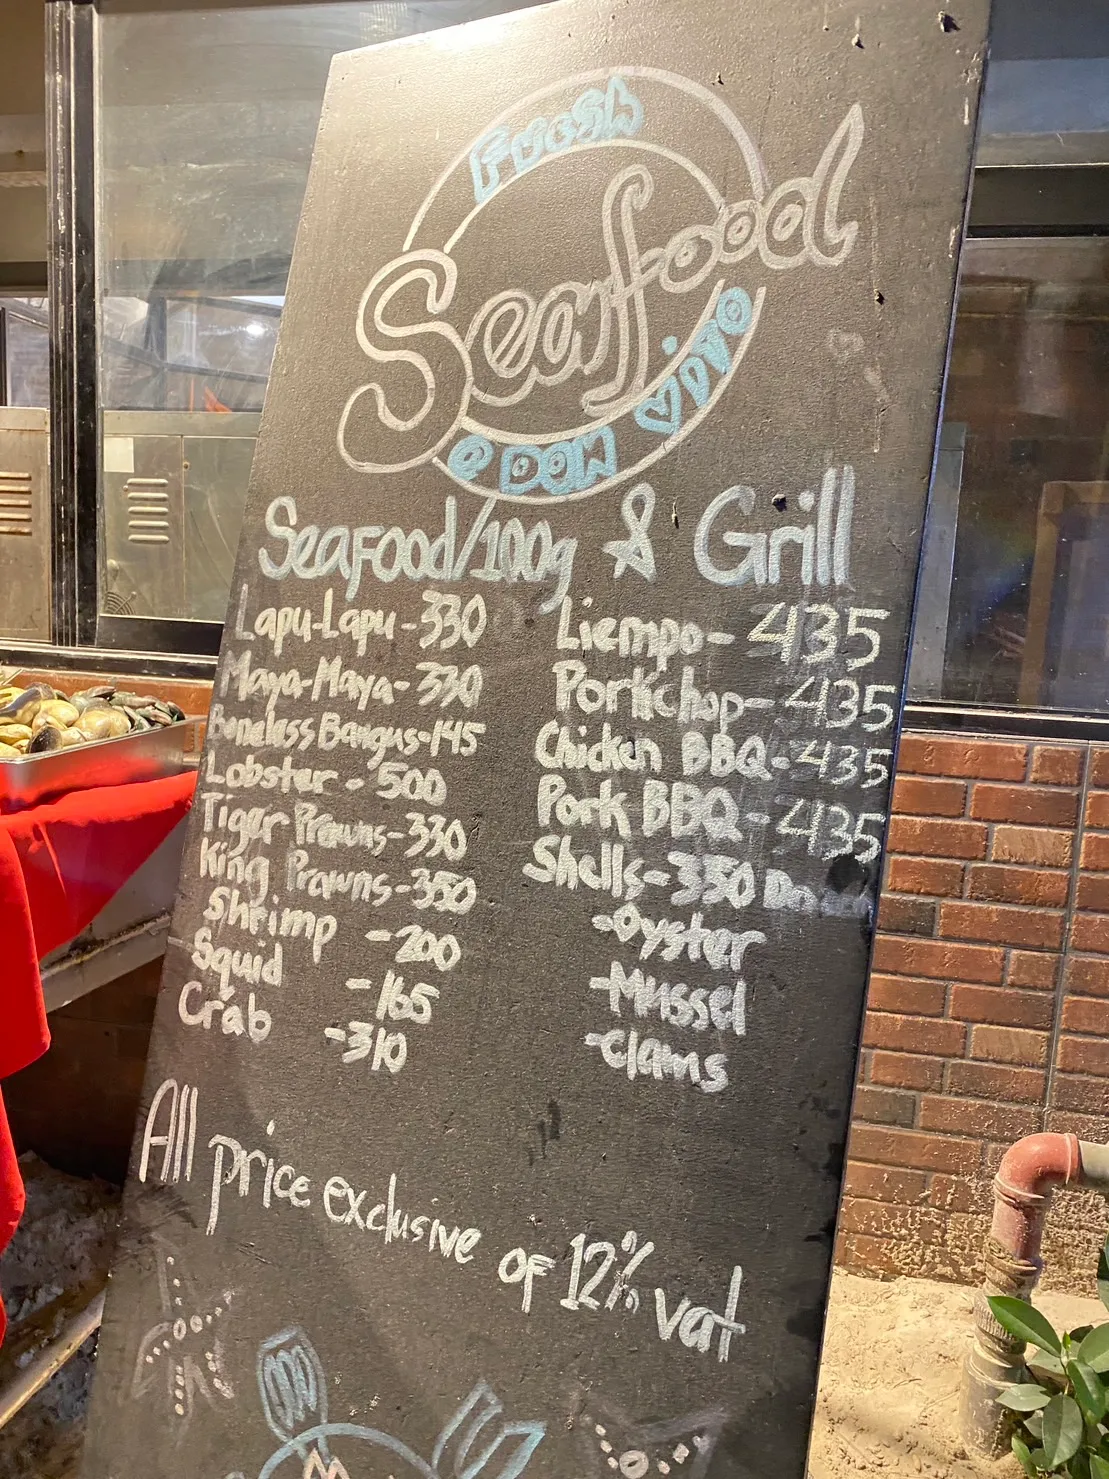 Fresh
Seafood
@ DOW Vino
Seafood/100g & Grill
Lapu-Lapu - 330
Maya-Maya - 330
Boneless Bangus - 145
Lobster - 500
Tiger Prawns - 330
King Prawns - 350
Shrimp - 200
Squid - 165
Crab - 310
Liempo - 435
Porkchop - 435
Chicken BBQ - 435
Pork BBQ - 435
Shells - 350
- Oyster
- Mussel
- Clams
All price exclusive of 12% vat